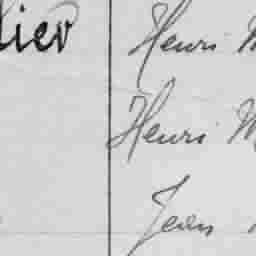 lier Henri M
Henri M
Jean